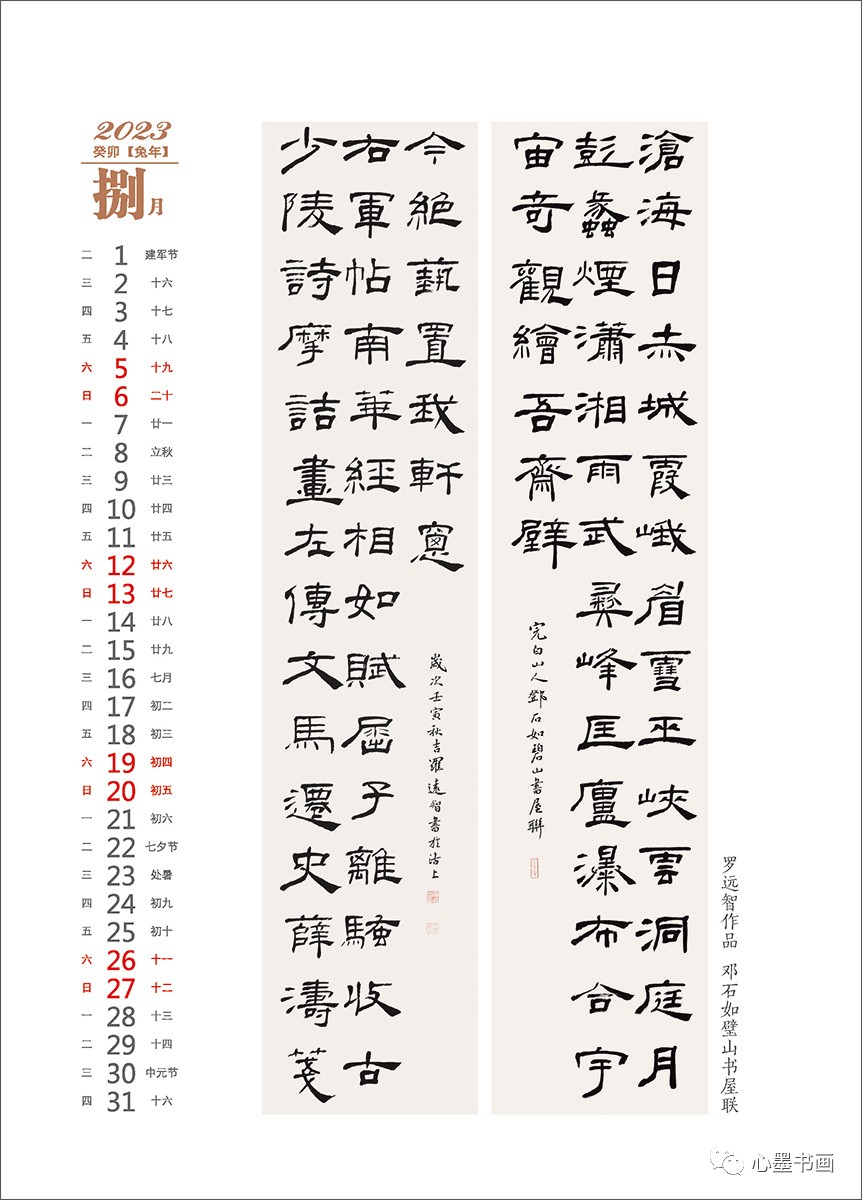 2023
癸卯【兔年】
捌月
二 1 建军节
三 2 十六
四 3 十七
五 4 十八
六 5 十九
日 6 二十
一 7 廿一
二 8 立秋
三 9 廿三
四 10 廿四
五 11 廿五
六 12 廿六
日 13 廿七
一 14 廿八
二 15 廿九
三 16 七月
四 17 初二
五 18 初三
六 19 初四
日 20 初五
一 21 初六
二 22 七夕节
三 23 处暑
四 24 初九
五 25 初十
六 26 十一
日 27 十二
一 28 十三
二 29 十四
三 30 中元节
四 31 十六
滄海日赤城霞峨眉雪巫峽雲洞庭月
彭蠡煙瀟湘雨武彝峰匡廬瀑布合宇
宙奇觀繪吾齋壁
完白山人鄧石如碧山書屋聯
少陵詩摩詰畫左傳文馬遷史薛濤箋
右軍帖南華經相如賦屈子離騷收古
今絕藝置我軒窗
歲次壬寅秋吉羅遠智書於沽上
罗远智作品 邓石如璧山书屋联
心墨书画